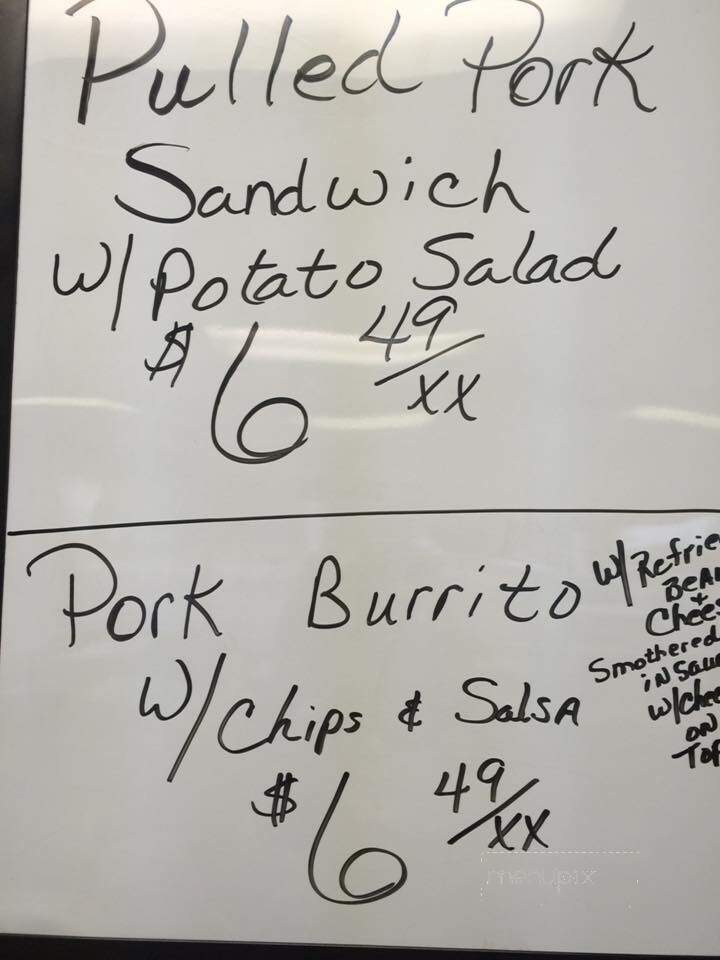 Pulled Pork
Sandwich
W/Potato Salad
$6 49/XX
Pork Burrito
W/Chips & Salsa
$6 49/XX
W/Refrie
Bea
+
Chees
Smothered
in Sau
w/chee
on
Top
menupix